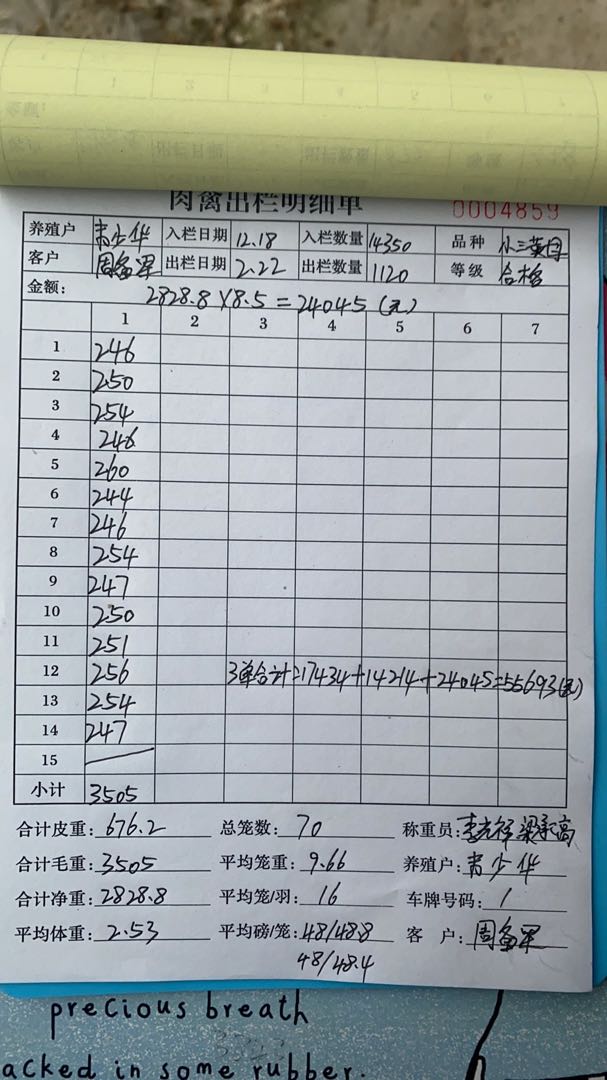 肉禽出栏明细单
0004859
养殖户 韦少华 入栏日期 12.18 入栏数量 14350 品种 小三黄母
客户 出栏日期 2.22 出栏数量 1120 等级 合格
金额: 2828.8×8.5=24045(元)
1 2 3 4 5 6 7
1 246
2 250
3 254
4 246
5 260
6 244
7 246
8 254
9 247
10 250
11 251
12 256 3单合计=17434+14214+24045=55693(元)
13 254
14 247
15
小计 3505
合计皮重: 676.2 总笼数: 70 称重员:
合计毛重: 3505 平均笼重: 9.66 养殖户: 韦少华
合计净重: 2828.8 平均笼/羽: 16 车牌号码: 1
平均体重: 2.53 平均磅/笼: 48/48.8 客 户:
48/48.4
precious breath
acked in some rubber.